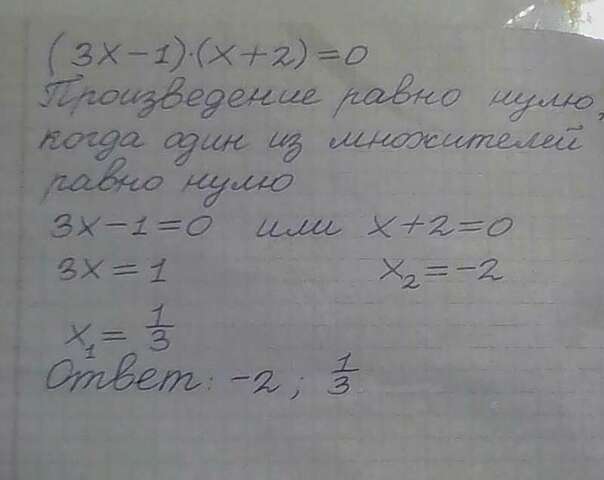 (3x-1)·(x+2)=0
Произведение равно нулю,
когда один из множителей
равно нулю
3x-1=0 или x+2=0
3x=1 x₂=-2
x₁= 1/3
Ответ: -2; 1/3